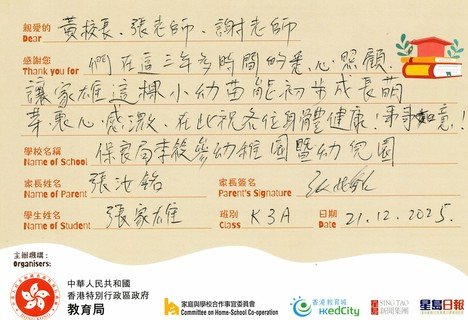 親愛的 黃校長、張老師、謝老師
Dear
感謝您 們在這三年多時間的悉心照顧,
Thank you for
讓家雄這棵小幼苗能初步成長萌
芽、衷心感激、在此祝各位身體健康!事事如意!
學校名稱 保良局李筱參幼稚園暨幼兒園
Name of School
家長姓名 張沙銘 家長簽名
Name of Parent Parent's Signature
學生姓名 張家雄 班別 K3A 日期 21.12.2025
Name of Student Class Date
主辦機構:
Organisers:
中華人民共和國
香港特別行政區政府
教育局
家庭與學校合作事宜委員會
Committee on Home-School Co-operation
香港教育城
HKedCity
星島 SING TAO
新聞集團
星島日報